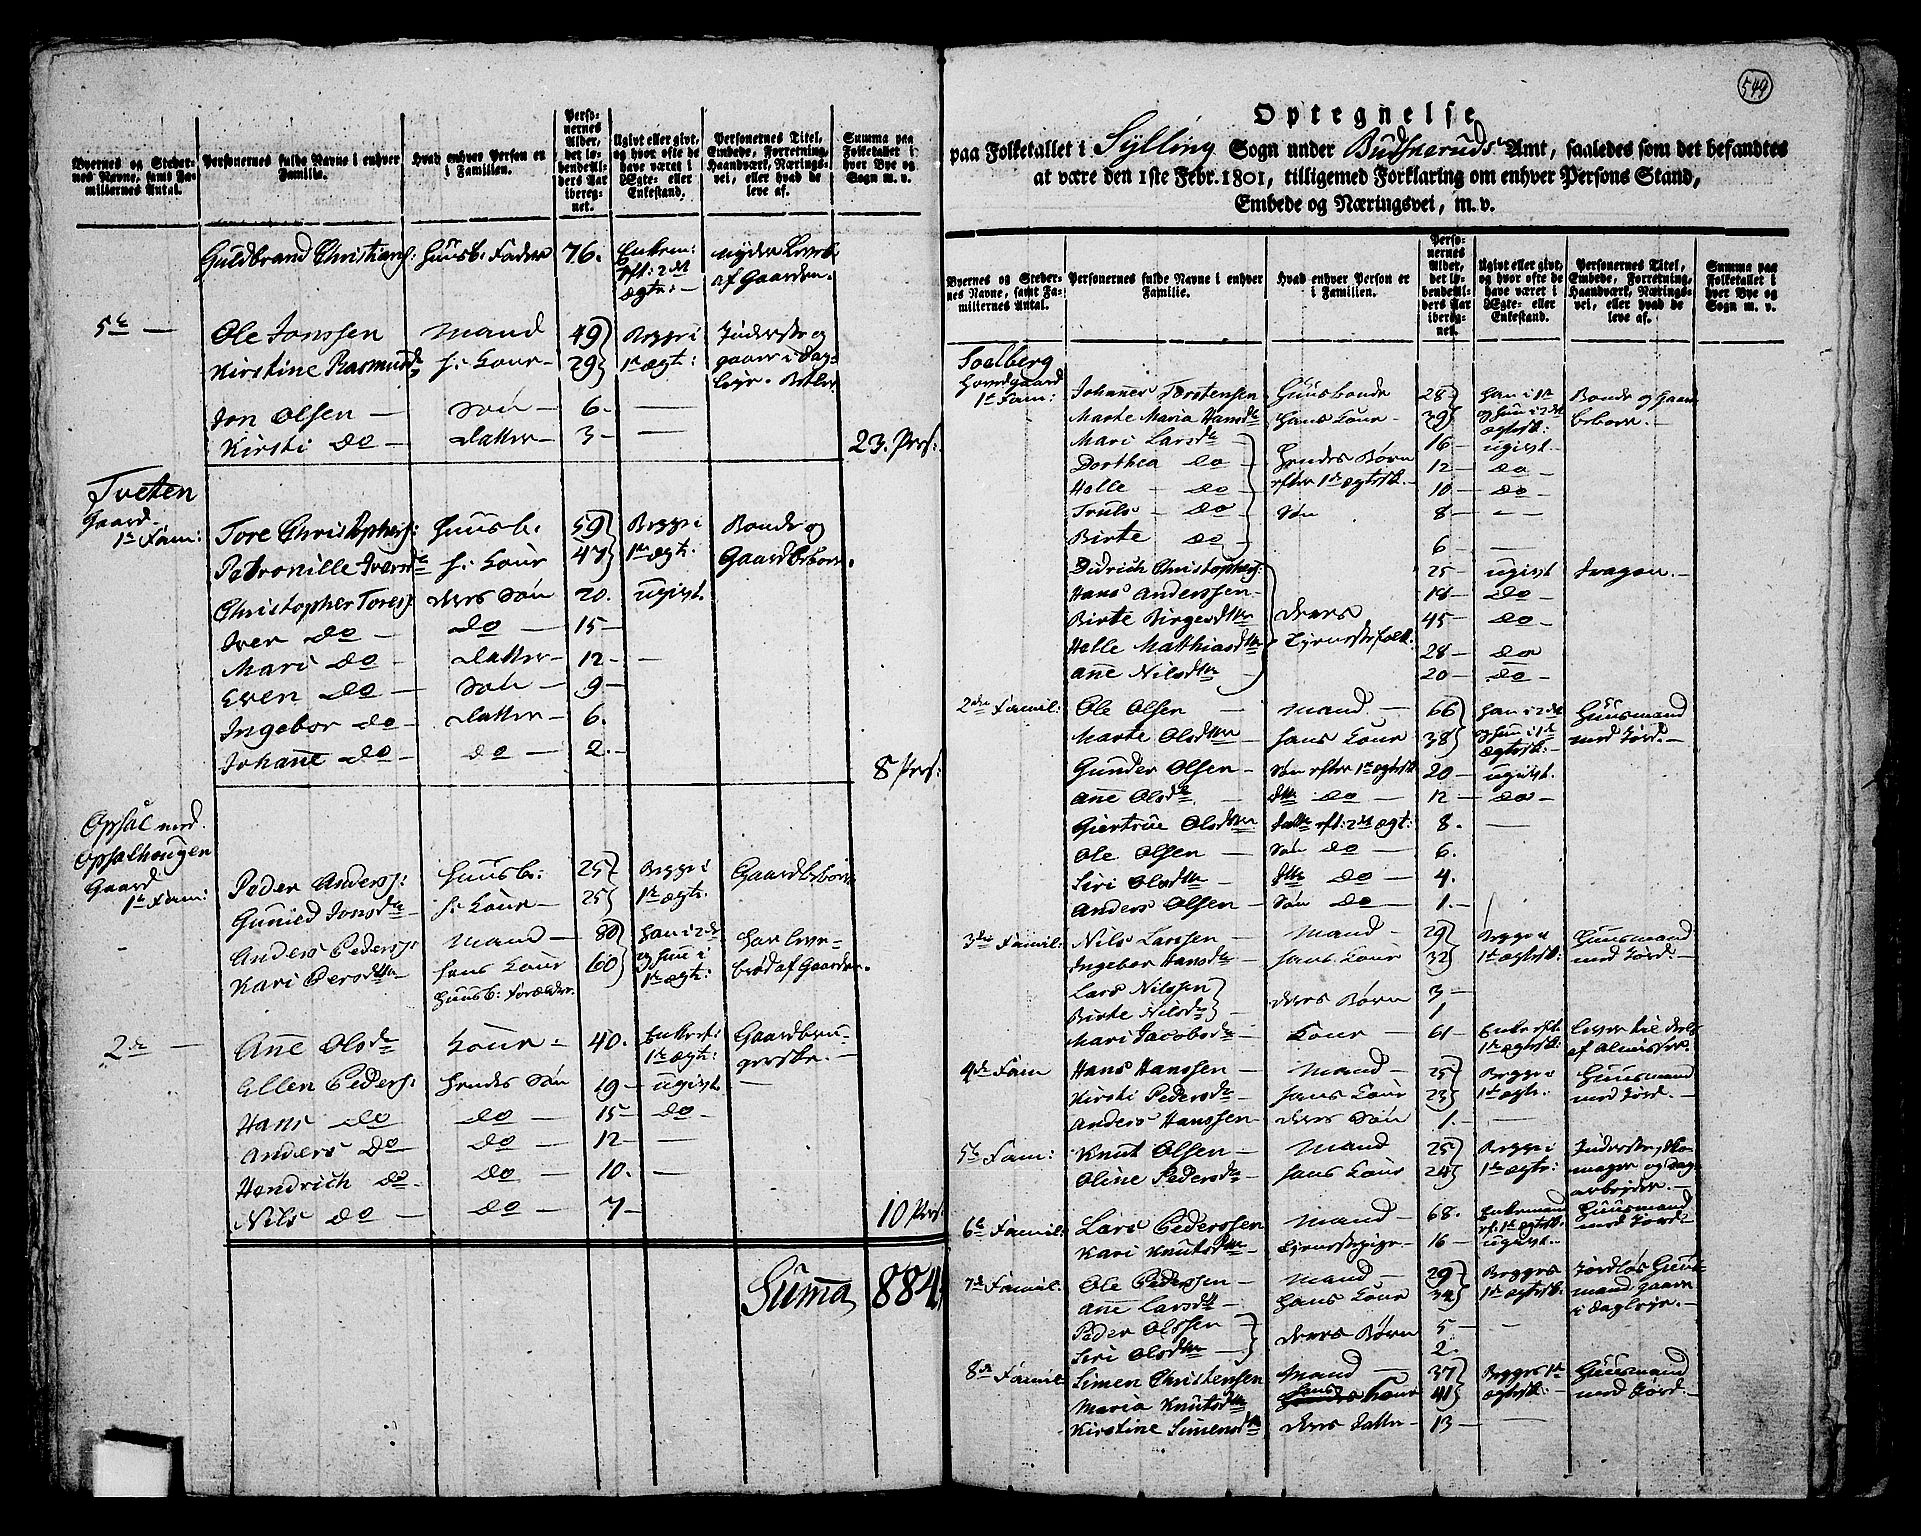 Byernes og Steder-
nes Navne, samt Fa-
miliernes Antal.
Personernes fulde Navne i enhver
Familie.
Hvad enhver Person er
i Familien.
Perso-
nernes
Alder,
det lø-
bende Al-
ders Aar
iberegnet.
Ugivt eller givt,
og hvor ofte de
have været i
Ægte- eller
Enkestand.
Personernes Titel,
Embede, Forretning,
Haandværk, Nærings-
vei, eller hvad de
leve af.
Summa paa
Folketallet i
hver Bye og
Sogn m. v.
Guldbrand Christians: Huusb. Fader 76. Enkem: nyder Leveb:
eft: 2det af Gaarden.
Ægte: -
5te — Ole Jonssen Mand 49 Begge i Inderste og
Kirstine Rasmusd. h: Kone- 29 1te ægt: gaaer i Dag-
leye.
Jon Olsen — Søn — 6. —
Kirsti do — Datter — 3 — —
23. Pers:
Tveten
Gaard.
1te Fam: Tore Christophers: Huusb. 59 Begge i Bonde og
Petronille Iversd h: Kone 47 1te ægt. Gaardbeboer.
Christopher Tores: deres Søn 20. ugivt.
Iver do — do — 15 —
Mari do — Datter — 12 — —
Even do — Søn — 9 —
Ingebor do — Datter — 6.
Johane do — do — 2. —
8 Pers:
Opsal med
Opsalhougen
Gaard
1te Fam: Peder Anders: Huusb: 25 Begge i Gaardbeboer
Gunild Jonsd h: Kone — 25 1te ægt:
Anders Peders: Mand — 80 han i 2det har leve-
Kari Persdtr hans Kone 60 og hun i brød af Gaarden.
Huusb: Forældre. 1te ægt:
2de — Ane Olsd Kone — 40. Enke eft: Gaardbru-
1te ægt: gerske. —
Ellen Peders: hendes Søn 19 — ugivt —
Hans do do — 15 — do —
Anders do do — 12 — —
Hendrich do do — 10. —
Nils do — do — 7 —
10 Pers:
Suma 884.
549
Optegnelse
paa Folketallet i Sylling Sogn under Budskeruds Amt, saaledes som det befandtes
at være den 1ste Febr. 1801, tilligemed Forklaring om enhver Persons Stand,
Embede og Næringsvei, m. v.
Byernes og Steder-
nes Navne, samt Fa-
miliernes Antal.
Personernes fulde Navne i enhver
Familie.
Hvad enhver Person er
i Familien.
Perso-
nernes
Alder,
det lø-
bende Al-
ders Aar
iberegnet.
Ugivt eller givt,
og hvor ofte de
have været i
Ægte- eller
Enkestand.
Personernes Titel,
Embede, Forretning,
Haandværk, Nærings-
vei, eller hvad de
leve af.
Summa paa
Folketallet i
hver Bye og
Sogn m. v.
Soelberg
Hovedgaard
1te Fam: Johannes Torstensen Huusbonde 28 han i 1te Bonde og Gaard
Marte Maria Hansd hans Kone — 39 og hun i 2det beboer. —
Mari Larsd 16 — ægtesk: ugivt
Dorthea do — hendes Børn 12 — do
Helle — do — efter 1te ægtesk. — 10 — do
Truls — do Søn 8 — —
Birte do — 6 — —
Didrich Christophers: 25 — ugivt Dragon. —
Hans Anderssen — 18 — do —
Birte Birgesdtr deres 45 — do
Helle Mathiasdtr tjenestefolk. 28 — do
Ane Nilsdtr 20 — do —
2den Famil: Ole Olsen — Mand — 66 han i 2det Huusmand
Marte Olsdtr hans Kone 38 og hun i 1te med Jord. —
ægtesk. —
Gunder Olsen — Søn efter 1te ægtesk 20 — ugivt.
Ane Olsd — dtr do — 12 — do —
Giertrue Olsdtr Datter eft: 2det ægt: 8. —
Ole Olsen — Søn do — 6.
Siri Olsdtr — dtr do — 4.
Anders Olsen — Søn do — 1. —
3die Famil: Nils Larssen — Mand — 29 Begge i Huusmand
Ingebor Hansd hans Kone 32 1te ægtesk: med Jord. —
Lars Nilssen deres Børn 3 —
Birte Nilsd 1.
Mari Jacobsd Kone — 61 — Enke eft: lever til deels
1te ægtesk: af Almisser.
4de Fam Hans Hanssen — Mand — 25 Begge i Huusmand
Kirsti Pedersd hans Kone 23 1te ægte: med Jord. —
Anders Hanssen deres Søn 1. —
5te Fam: Knut Olsen — Mand 25 Begge i Inderste, sko-
Oline Pedersd — hans Kone 24 1te ægte: mager og dag-
arbejder. —
6te Famil: Lars Pederssen Mand — 68. Enkemand Huusmand
eft. 1te ægtesk. med Jord —
Kari Knutsdtr — tjenestepige. — 16 — ugivt. —
7de Famil: Ole Pederssen — Mand — 29 Begge i Jordløs Huus-
Ane Larsdtr — hans Kone 34 1te ægtesk. mand gaaer
i Dagleye. —
Peder Olssen — deres Børn 5 — —
Siri Olsdtr — 2.
8de Famil Simen Christensen Mand — 37 Begge 1te Huusmand
Maria Knutsdtr hans Kone 41 ægtesk: — med Jord. —
Kirstine Simensd deres Datter — 13 — —